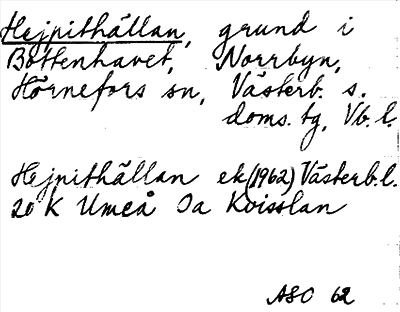 Hejpithällan, grund i
Bottenhavet, Norrbyn,
Hörnefors sn, Västerb. s.
doms. tg, Vb. l.
Hejpithällan ek (1962) Västerb.l.
20 K Umeå Oa Kvisslan
ASO 62